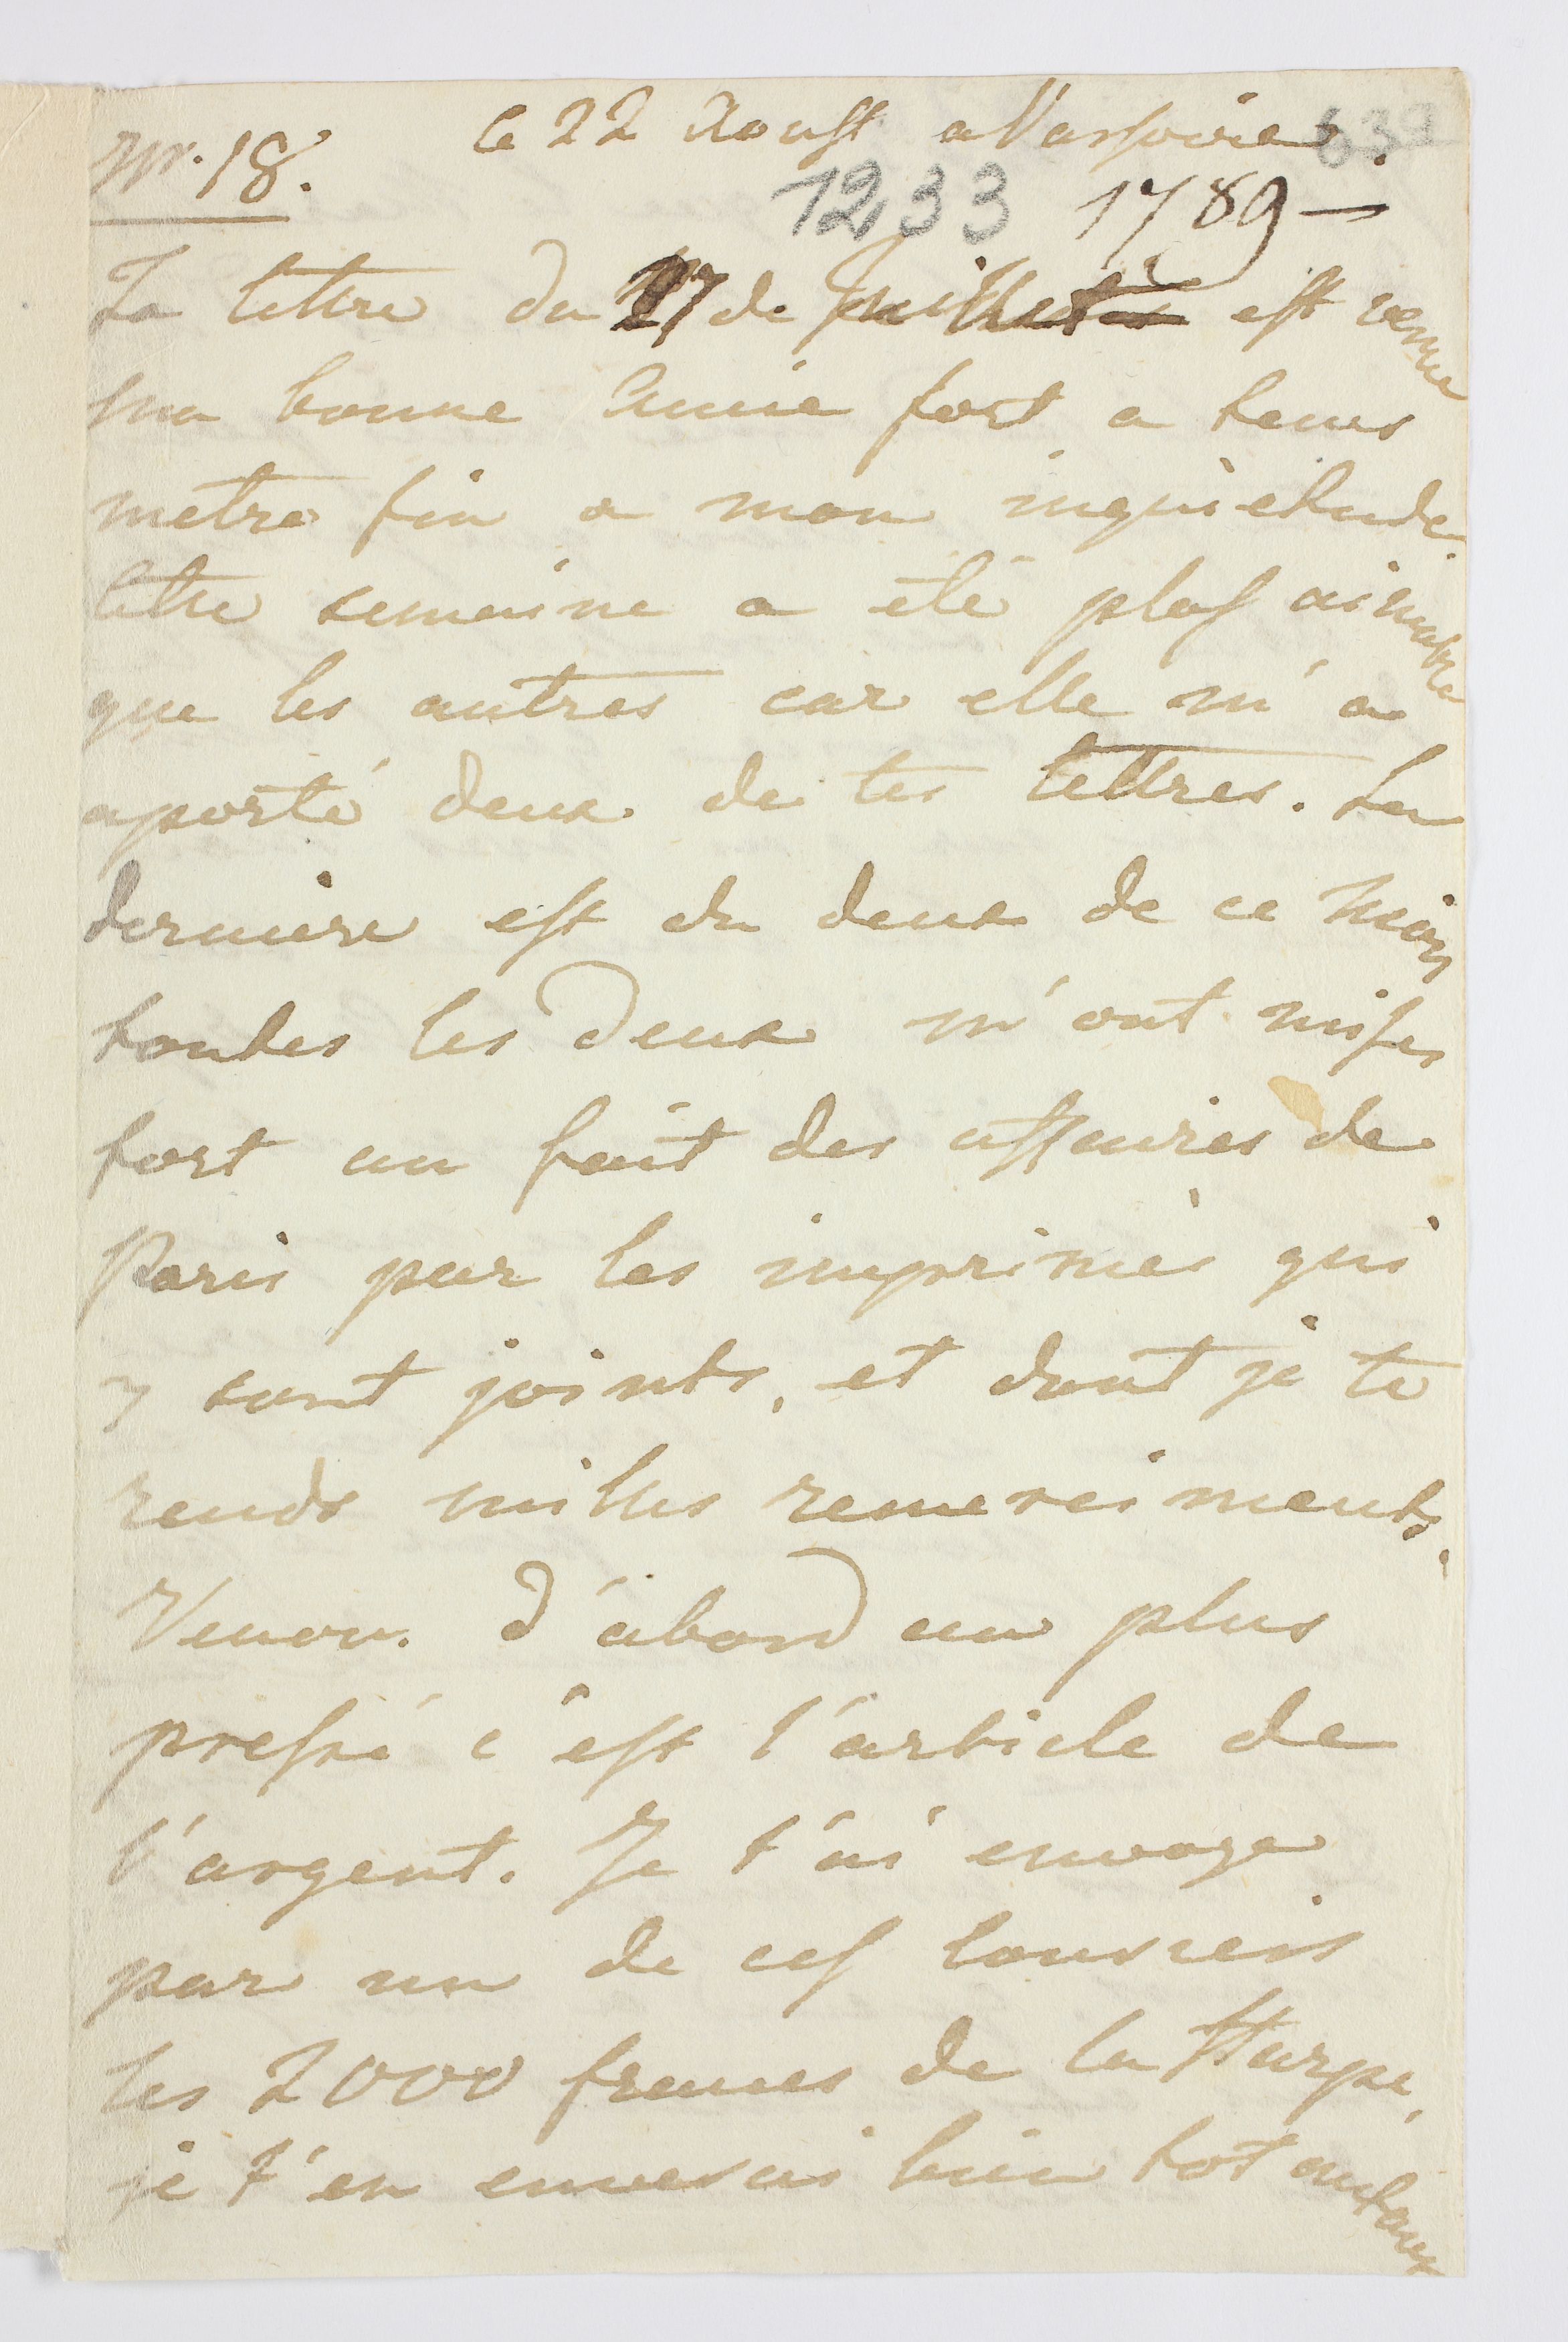 le 22 Aoust a Varsovie. 639
No. 18.
1233 1789 —
Ta lettre du 27 de Juillet est venue
ma bonne Amie fort a tems
metre fin a mon inquietude.
Cette semaine a été plus aimable
que les autres car elle m'a
aporté deux de tes lettres. La
derniere est du deux de ce mois
toutes les deux m'ont mises
fort au fait des affaires de
Paris par les imprimés qui
y sont joints, et dont je te
rends milles remerciments.
Venon. d'abord au plus
pressé c'est l'article de
l'argent. Je t'ai envoye
par un de ces couriers
les 2000 francs de la Harpe,
je t'en enverai bien tot autant